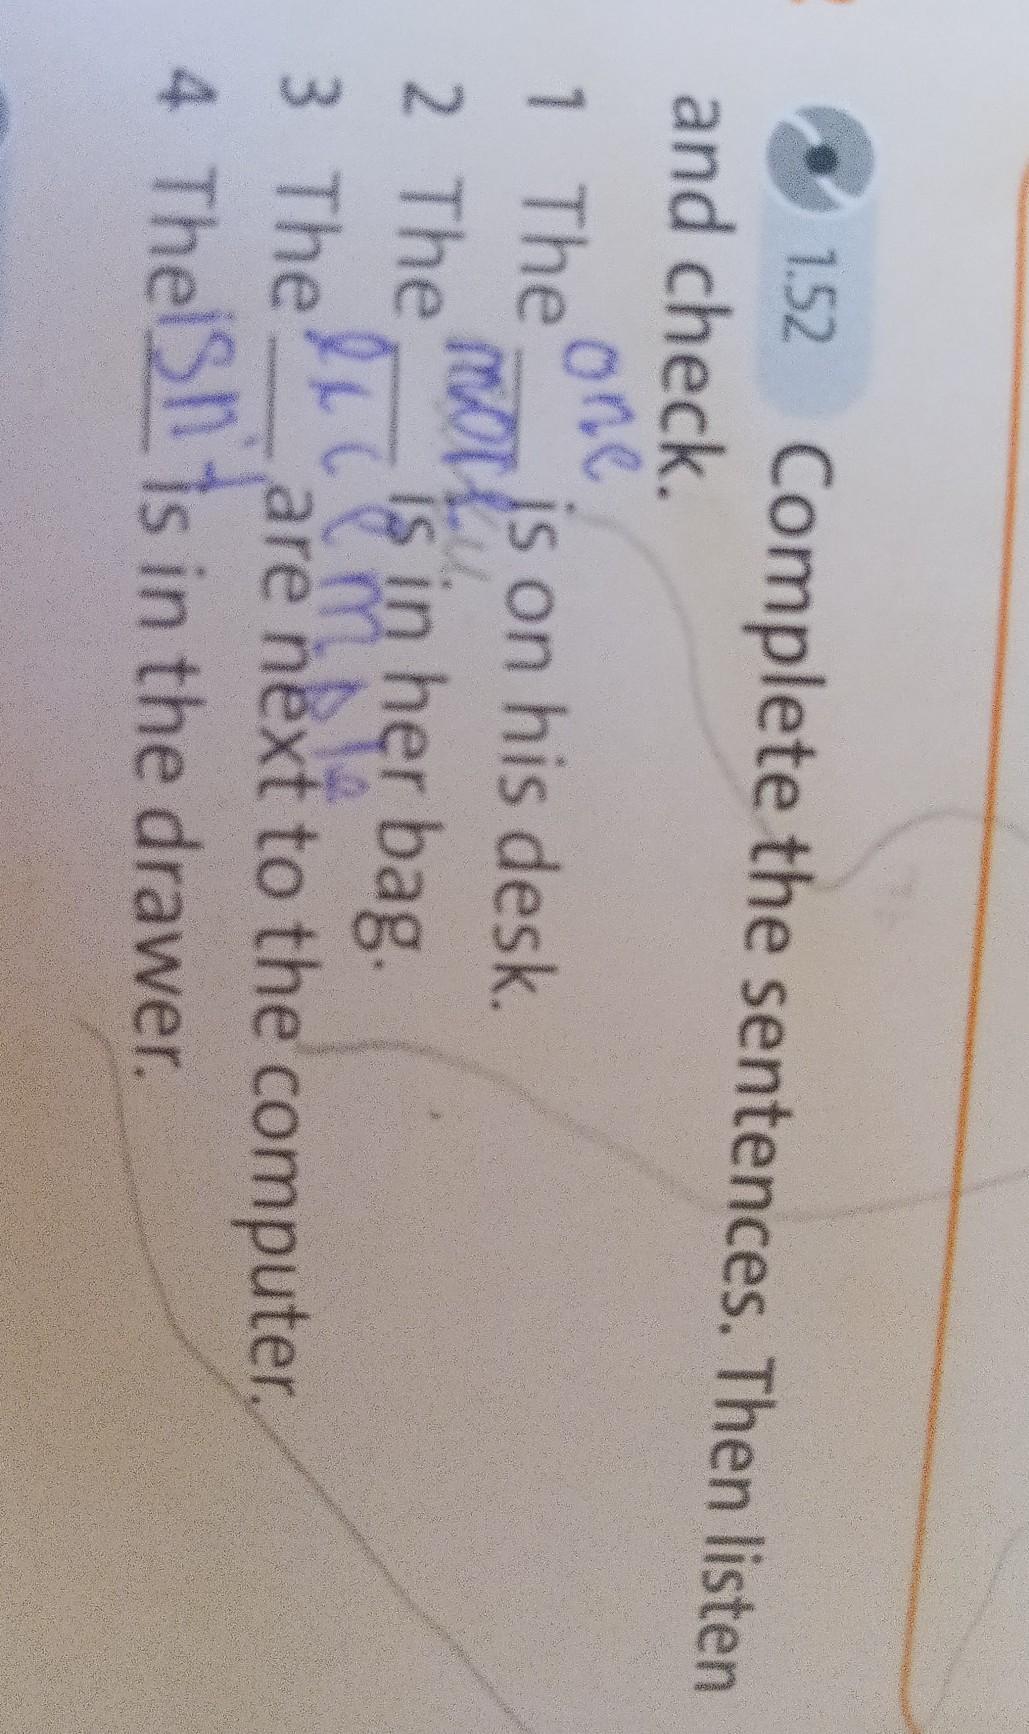 1.52 Complete the sentences. Then listen
and check.
one
1 The ___ is on his desk.
2 The ___ is in her bag.
3 The ___ are next to the computer.
4 The isn't is in the drawer.